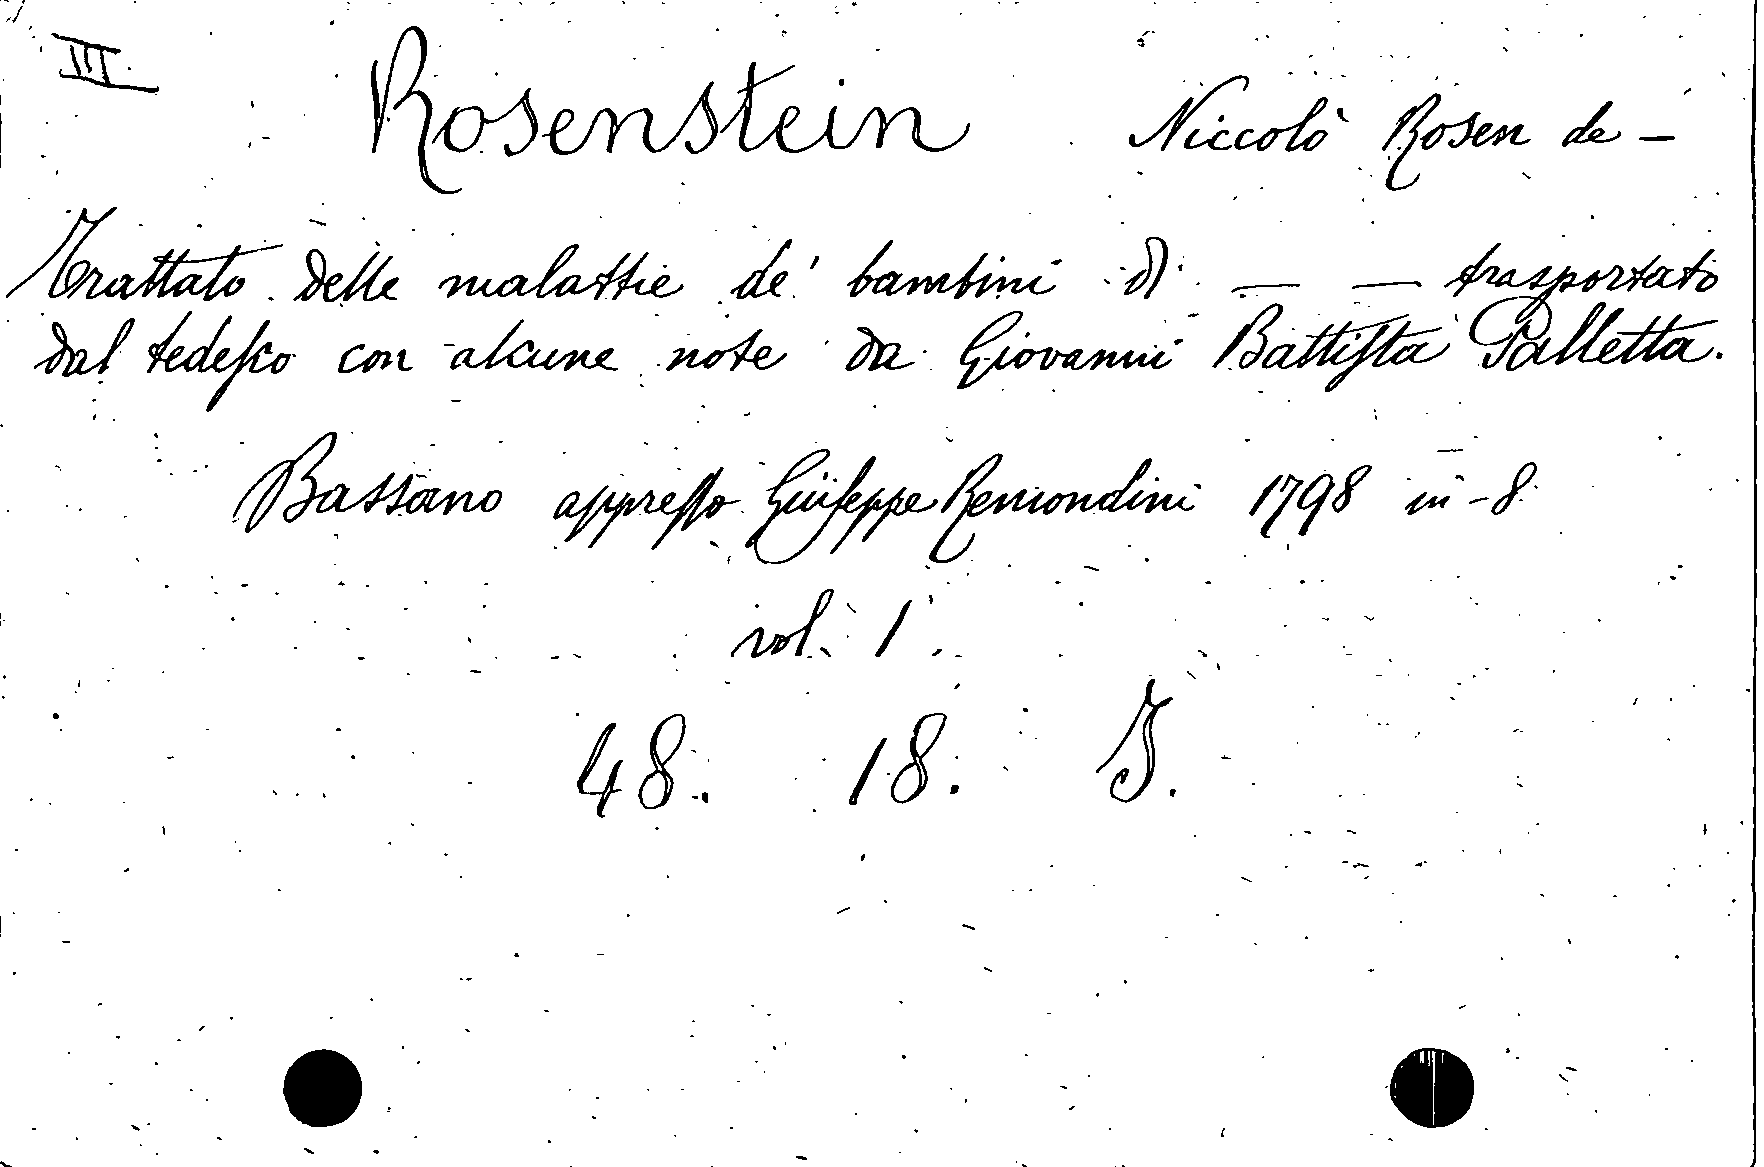 III.
Rosenstein Niccolò Rosen de —
Trattato delle malattie de' bambini di — — trasportato
dal tedeſco con alcune note da Giovanni Battiſta Palletta.
Bassano appreſſo Giuſeppe Remondini 1798 in-8
vol. 1.
48. 18. J.